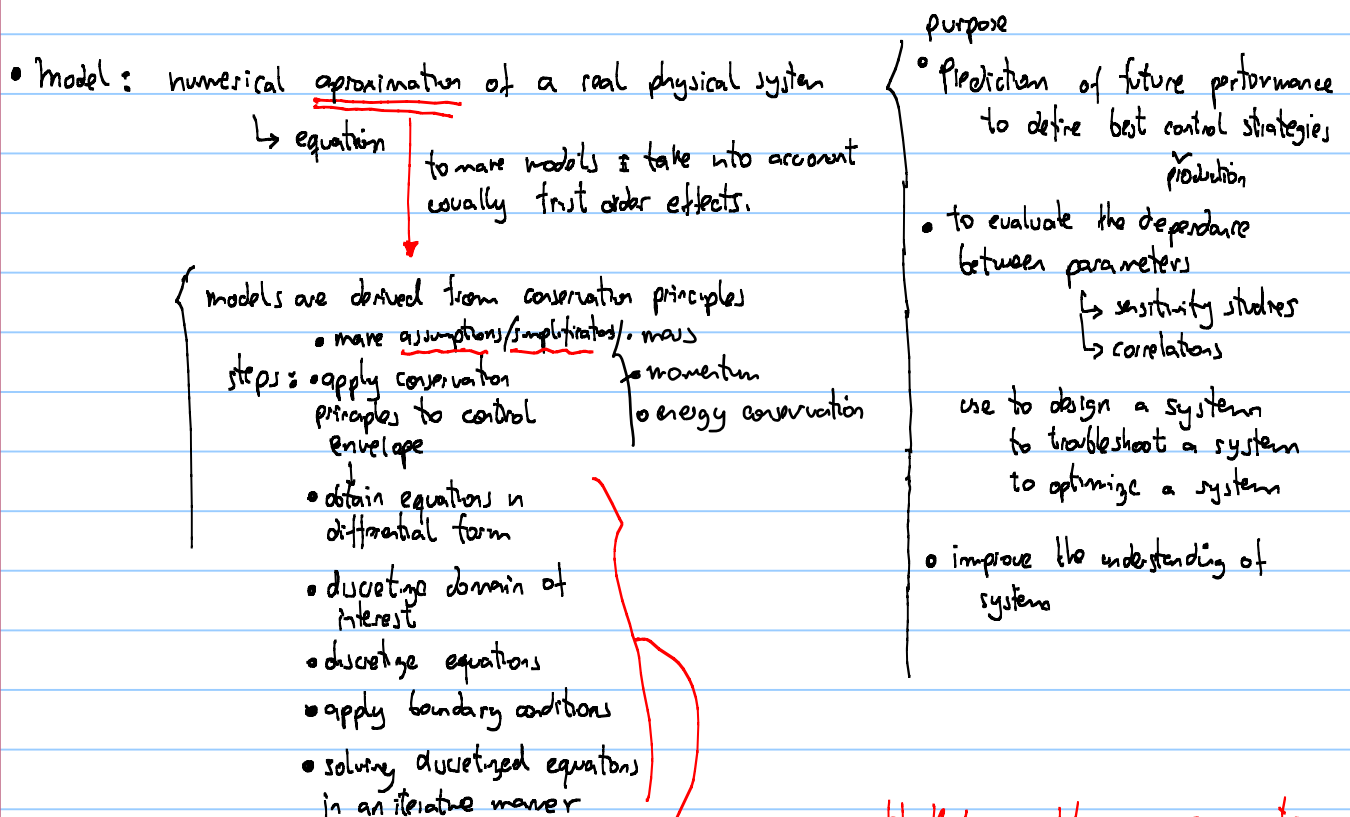 • Model: numerical aproximation of a real physical system
↳ equation
to make models I take into account
usually first order effects.
models are derived from conservation principles
• make assumptions/simplifications
• mass
• momentum
• energy conservation
steps: • apply conservation
principles to control
envelope
• obtain equations in
differential form
• discretize domain of
interest
• discretize equations
• apply boundary conditions
• solving discretized equations
in an iterative manner
purpose
• Prediction of future performance
to define best control strategies
production
• to evaluate the dependance
between parameters
↳ sensitivity studies
↳ correlations
use to design a system
to troubleshoot a system
to optimize a system
• improve the understanding of
system